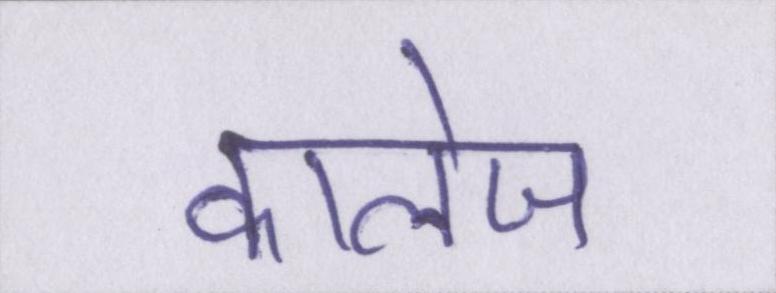 कालेज